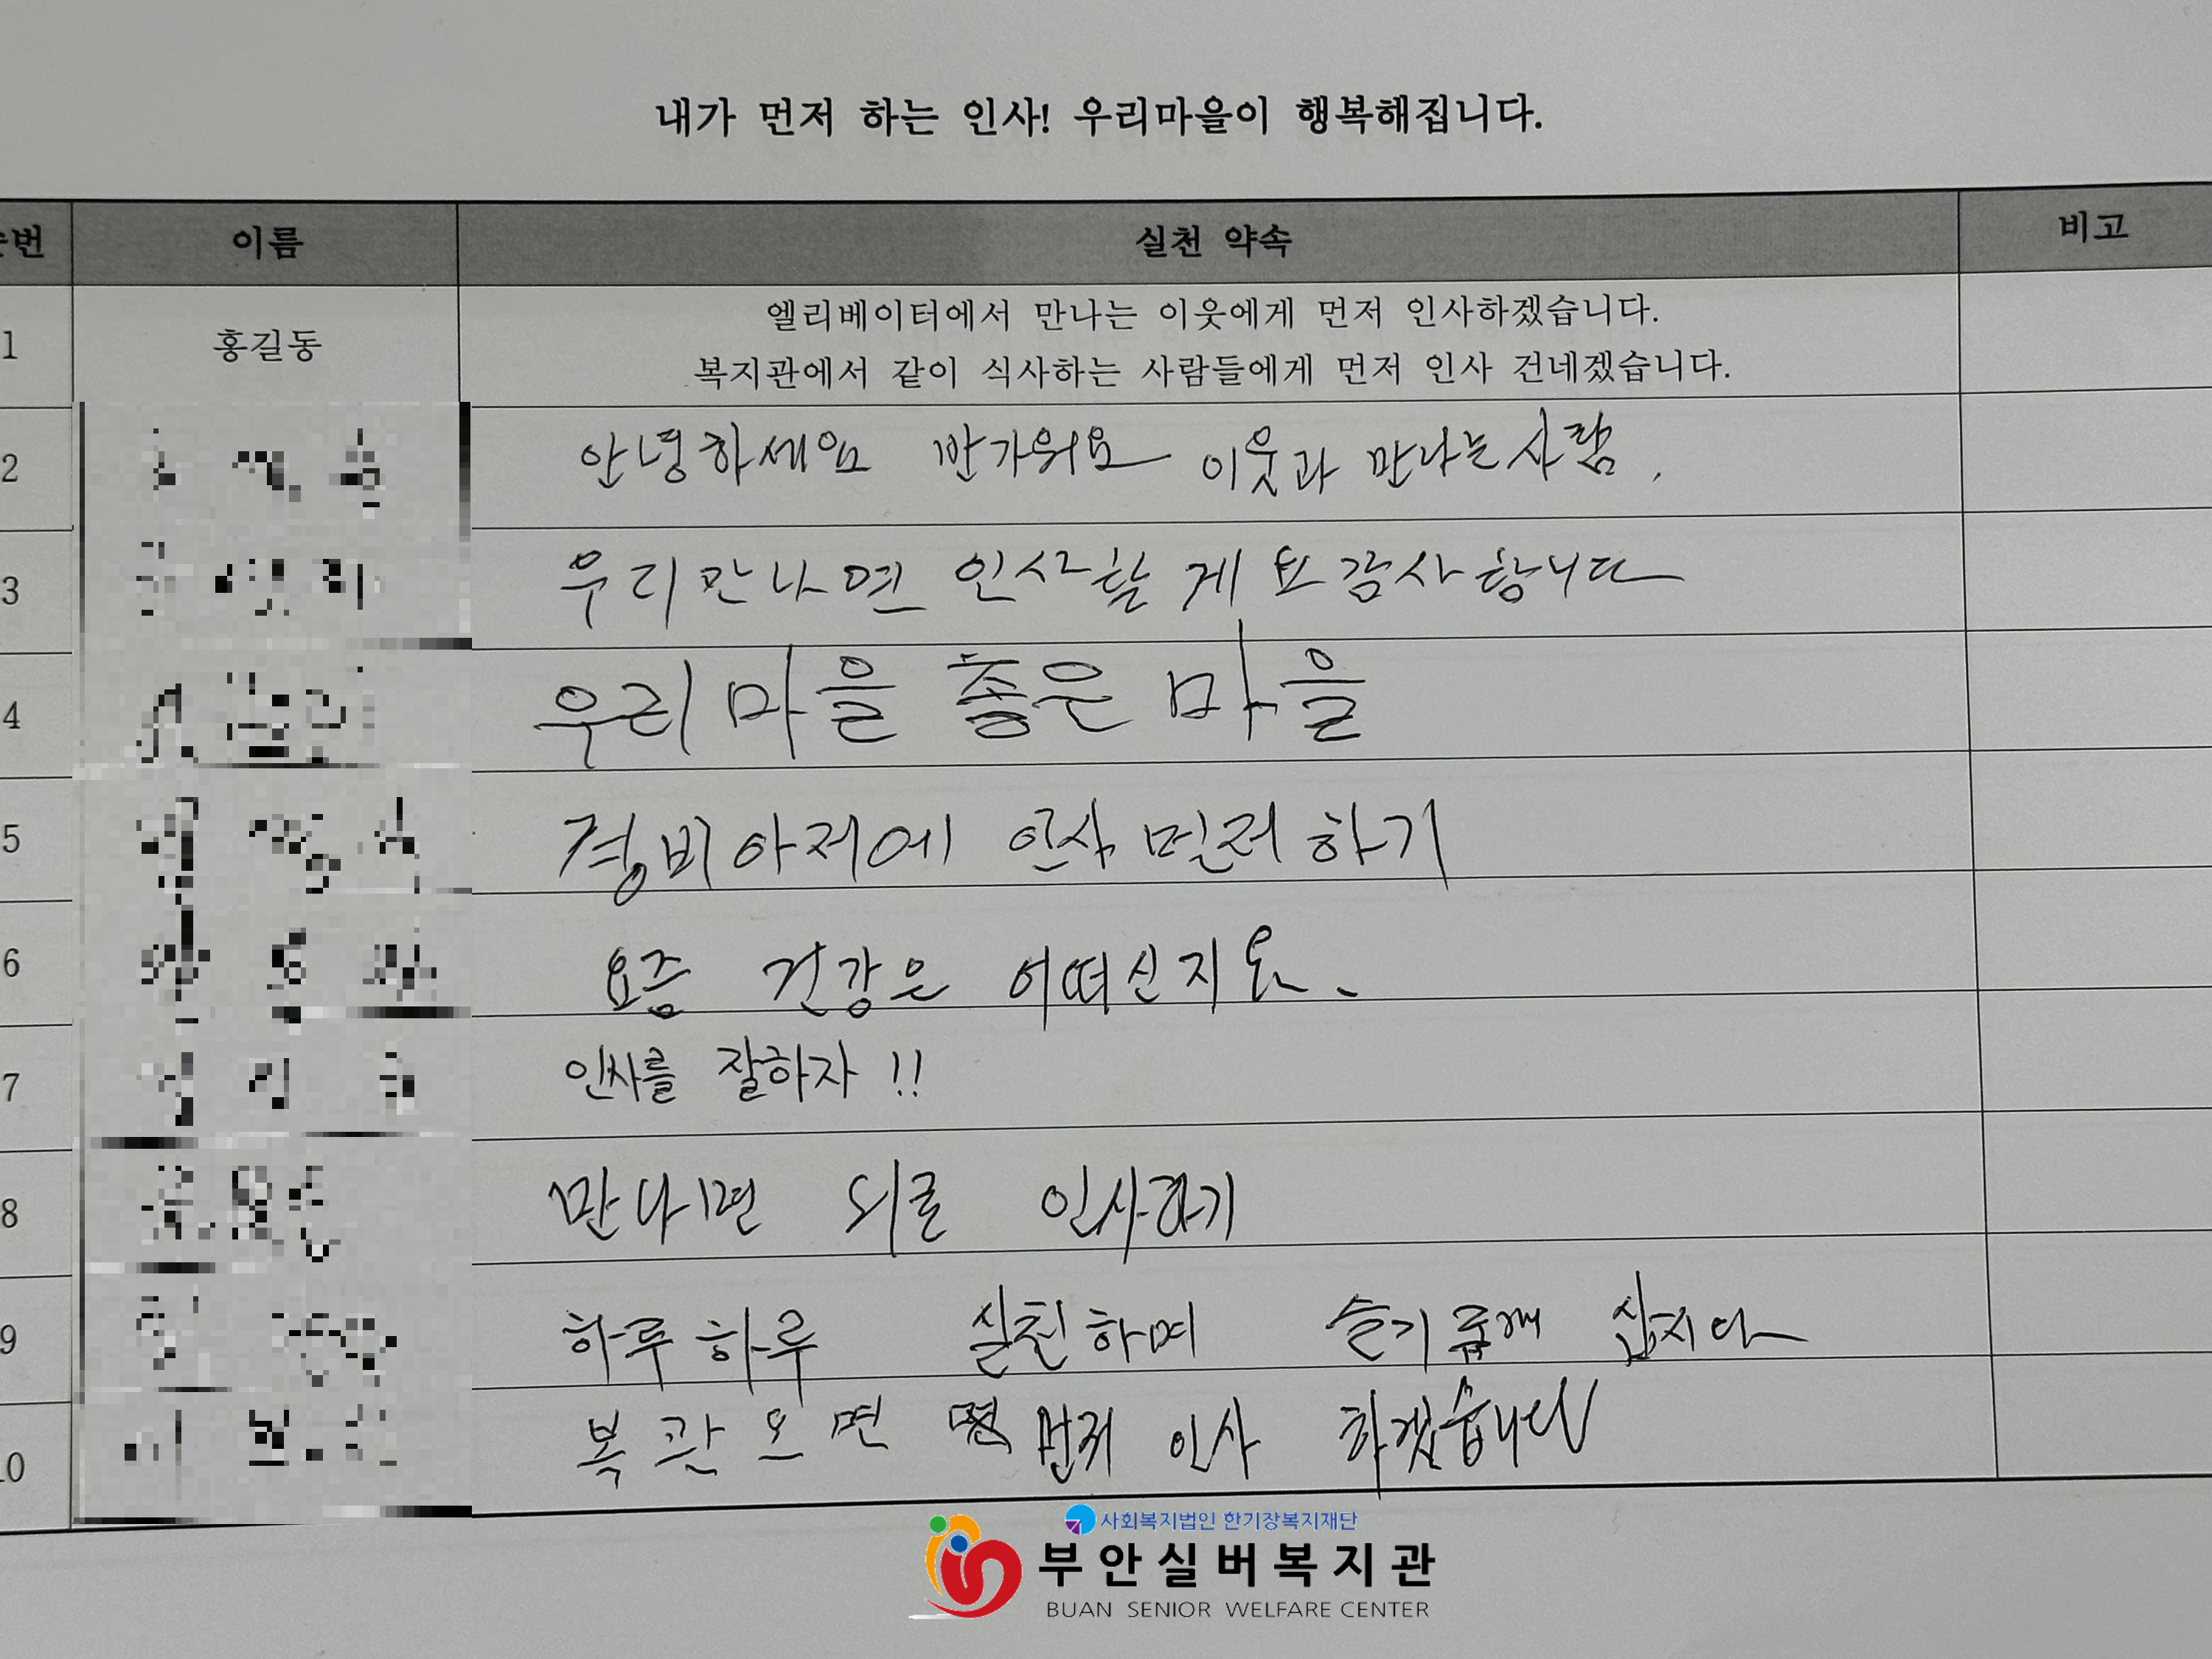 내가 먼저 하는 인사! 우리마을이 행복해집니다.
번 이름 실천 약속 비고
1 홍길동 엘리베이터에서 만나는 이웃에게 먼저 인사하겠습니다.
복지관에서 같이 식사하는 사람들에게 먼저 인사 건네겠습니다.
2 안녕하세요 반가워요 이웃과 만나는 사람.
3 우리 만나면 인사할게요 감사합니다
4 우리 마을 좋은 마을
5 경비아저에 인사 먼저하기
6 요즘 건강은 어떠신지요.
7 인사를 잘하자!!
8 만나면 인사하기
9 하루하루 실천하며 슬기롭게 삽시다
10 복관오면 먼저 인사 하겠습니다
사회복지법인 한기장복지재단
부안실버복지관
BUAN SENIOR WELFARE CENTER